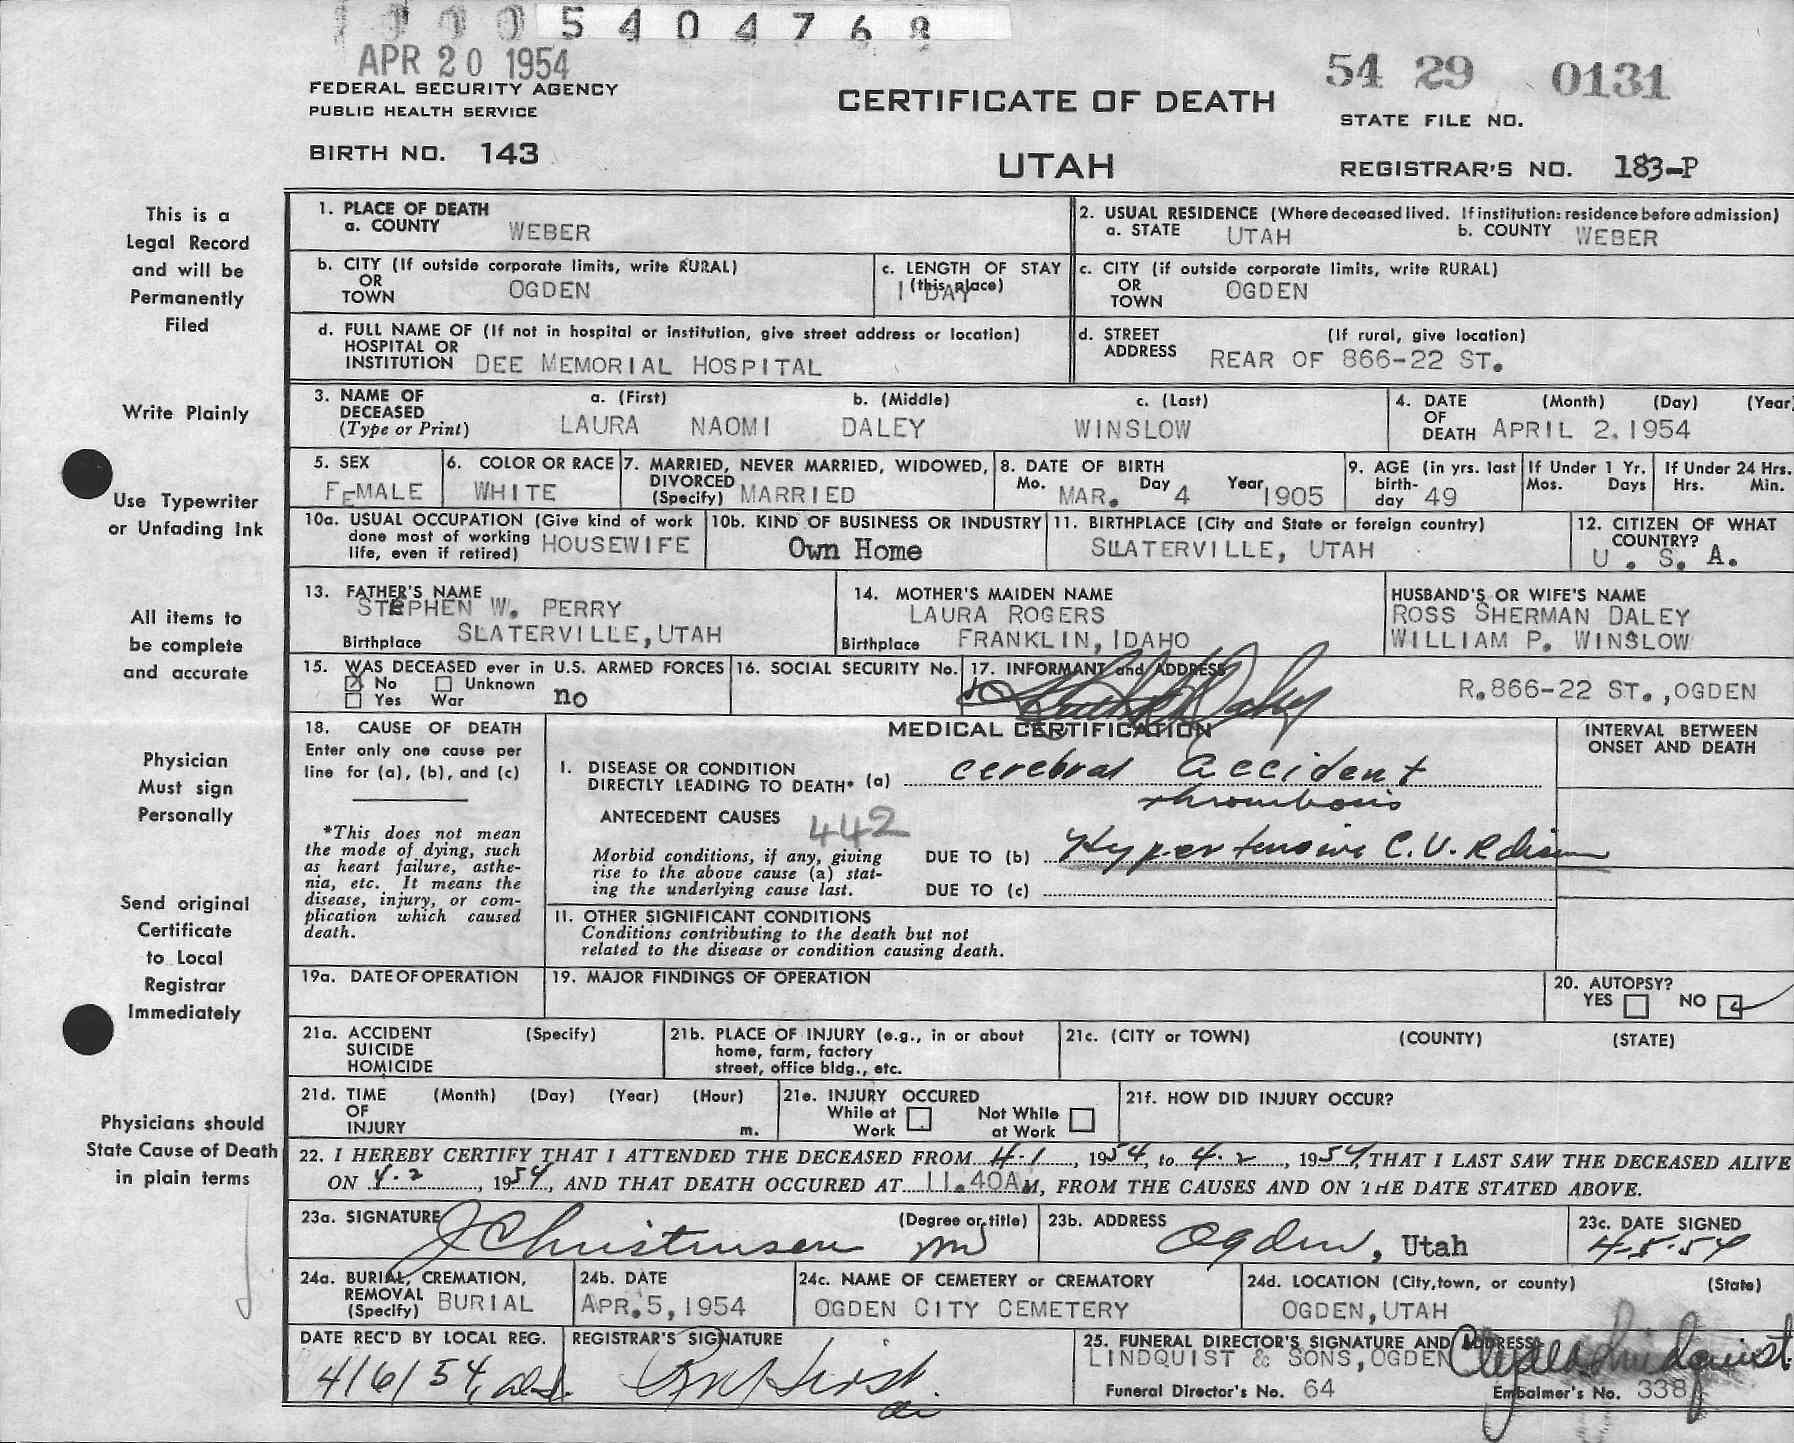 5404768
APR 20 1954
FEDERAL SECURITY AGENCY
PUBLIC HEALTH SERVICE
BIRTH NO. 143
CERTIFICATE OF DEATH
UTAH
54 29 0131
STATE FILE NO.
REGISTRAR'S NO. 183-P
This is a
Legal Record
and will be
Permanently
Filed
Write Plainly
Use Typewriter
or Unfading Ink
All items to
be complete
and accurate
Physician
Must sign
Personally
Send original
Certificate
to Local
Registrar
Immediately
Physicians should
State Cause of Death
in plain terms
1. PLACE OF DEATH
a. COUNTY WEBER
2. USUAL RESIDENCE (Where deceased lived. If institution: residence before admission)
a. STATE UTAH b. COUNTY WEBER
b. CITY (If outside corporate limits, write RURAL)
OR
TOWN OGDEN
c. LENGTH OF STAY
(this place)
1 DAY
c. CITY (if outside corporate limits, write RURAL)
OR
TOWN OGDEN
d. FULL NAME OF (If not in hospital or institution, give street address or location)
HOSPITAL OR
INSTITUTION DEE MEMORIAL HOSPITAL
d. STREET (If rural, give location)
ADDRESS REAR OF 866-22 ST.
3. NAME OF a. (First) b. (Middle) c. (Last)
DECEASED
(Type or Print) LAURA NAOMI DALEY WINSLOW
4. DATE (Month) (Day) (Year)
OF
DEATH APRIL 2, 1954
5. SEX
FEMALE
6. COLOR OR RACE
WHITE
7. MARRIED, NEVER MARRIED, WIDOWED,
DIVORCED
(Specify) MARRIED
8. DATE OF BIRTH
Mo. MAR. Day 4 Year 1905
9. AGE (in yrs. last
birth-
day 49
If Under 1 Yr.
Mos. Days
If Under 24 Hrs.
Hrs. Min.
10a. USUAL OCCUPATION (Give kind of work
done most of working
life, even if retired) HOUSEWIFE
10b. KIND OF BUSINESS OR INDUSTRY
Own Home
11. BIRTHPLACE (City and State or foreign country)
SLATERVILLE, UTAH
12. CITIZEN OF WHAT
COUNTRY?
U. S. A.
13. FATHER'S NAME
STEPHEN W. PERRY
Birthplace SLATERVILLE, UTAH
14. MOTHER'S MAIDEN NAME
LAURA ROGERS
Birthplace FRANKLIN, IDAHO
HUSBAND'S OR WIFE'S NAME
ROSS SHERMAN DALEY
WILLIAM P. WINSLOW
15. WAS DECEASED ever in U.S. ARMED FORCES
X No Unknown
Yes War no
16. SOCIAL SECURITY No.
17. INFORMANT and ADDRESS
Daley
R. 866-22 ST., OGDEN
18. CAUSE OF DEATH
Enter only one cause per
line for (a), (b), and (c)
*This does not mean
the mode of dying, such
as heart failure, asthe-
nia, etc. It means the
disease, injury, or com-
plication which caused
death.
MEDICAL CERTIFICATION
INTERVAL BETWEEN
ONSET AND DEATH
I. DISEASE OR CONDITION
DIRECTLY LEADING TO DEATH* (a) cerebral accident
thrombosis
ANTECEDENT CAUSES 442
Morbid conditions, if any, giving
rise to the above cause (a) stat-
ing the underlying cause last.
DUE TO (b) Hypertensive C.V.R disease
DUE TO (c)
II. OTHER SIGNIFICANT CONDITIONS
Conditions contributing to the death but not
related to the disease or condition causing death.
19a. DATE OF OPERATION
19. MAJOR FINDINGS OF OPERATION
20. AUTOPSY?
YES NO
21a. ACCIDENT (Specify)
SUICIDE
HOMICIDE
21b. PLACE OF INJURY (e.g., in or about
home, farm, factory
street, office bldg., etc.
21c. (CITY or TOWN) (COUNTY) (STATE)
21d. TIME (Month) (Day) (Year) (Hour)
OF
INJURY m.
21e. INJURY OCCURED
While at Work
Not While at Work
21f. HOW DID INJURY OCCUR?
22. I HEREBY CERTIFY THAT I ATTENDED THE DECEASED FROM 4-1, 1954, to 4-2, 1954, THAT I LAST SAW THE DECEASED ALIVE
ON 4-2, 1954, AND THAT DEATH OCCURED AT 11.40AM, FROM THE CAUSES AND ON THE DATE STATED ABOVE.
23a. SIGNATURE (Degree or title)
J Christensen MD
23b. ADDRESS
Ogden, Utah
23c. DATE SIGNED
4-5-54
24a. BURIAL, CREMATION,
REMOVAL
(Specify) BURIAL
24b. DATE
APR. 5, 1954
24c. NAME OF CEMETERY or CREMATORY
OGDEN CITY CEMETERY
24d. LOCATION (City, town, or county) (State)
OGDEN, UTAH
DATE REC'D BY LOCAL REG.
4/6/54
REGISTRAR'S SIGNATURE
25. FUNERAL DIRECTOR'S SIGNATURE AND ADDRESS
LINDQUIST & SONS, OGDEN
Clyde Lindquist
Funeral Director's No. 64
Embalmer's No. 338